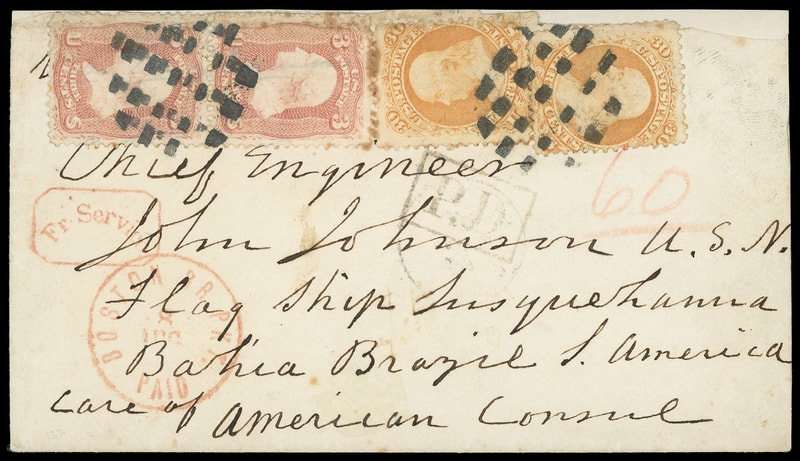 3 U.S. POSTAGE 3
30 U.S. POSTAGE 30
30 U.S. POSTAGE 30
60
P.D.
Chief Engineer
John Johnson U.S.N.
Flag Ship Susquehanna
Bahia Brazil S. America
care of American Consul
Fr. Servi
BOSTON BR. PK.
PAID